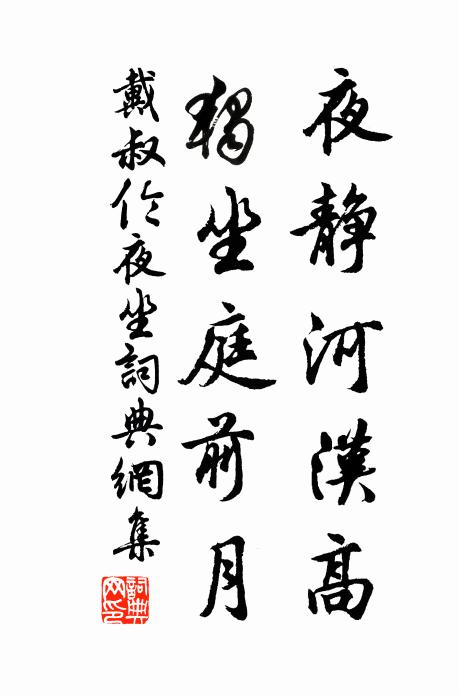 夜静河漢高
獨坐庭前月
戴叔伦夜坐詞典網集
詞典网印